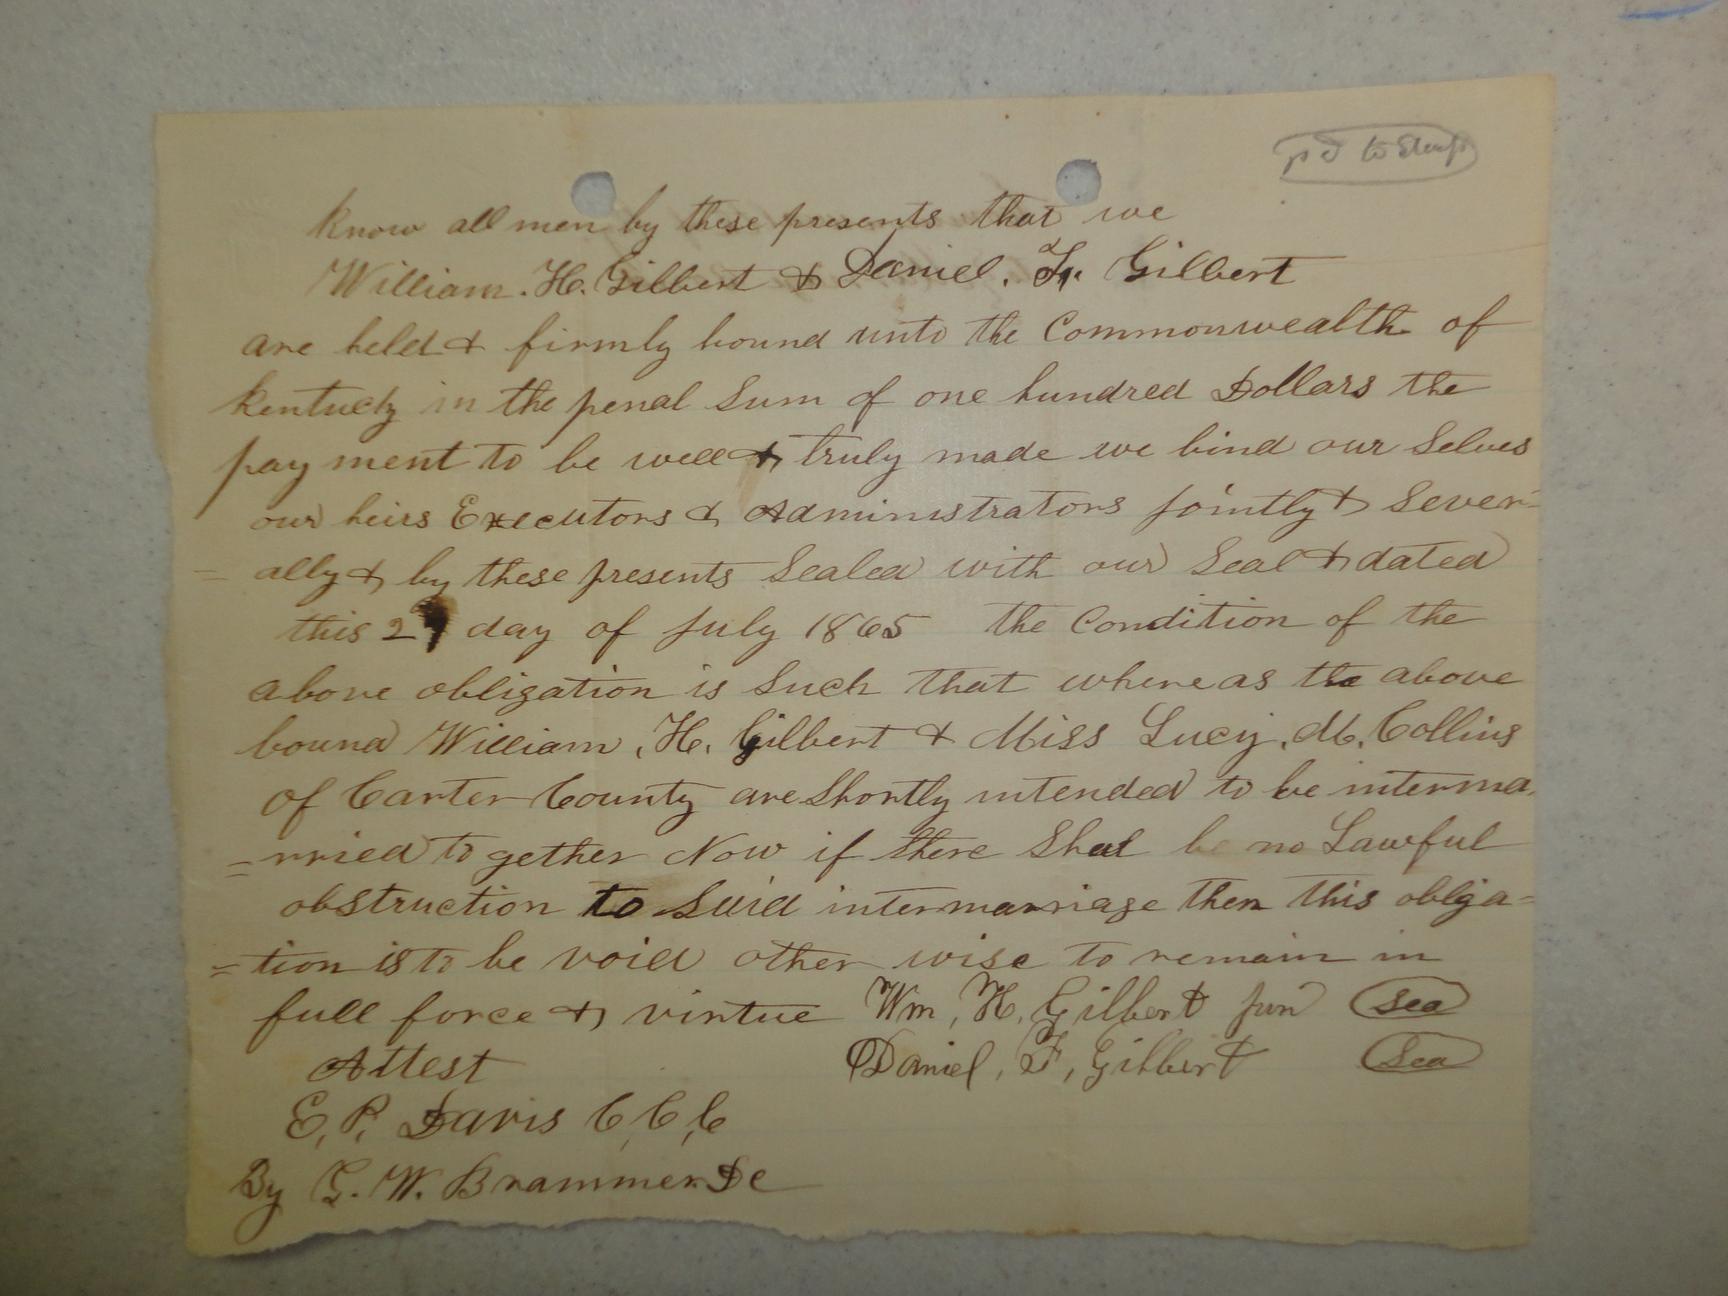 pd to
know all men by these presents that we
William. H. Gilbert & Daniel. F. Gilbert
are held & firmly bound unto the Commonwealth of
Kentucky in the penal Sum of one hundred Dollars the
pay ment to be well & truly made we bind our Selves
our heirs Executors & Administrators jointly & Sever-
= ally & by these presents Sealed with our Seal & dated
this 27 day of July 1865 the Condition of the
above obligation is Such that where as the above
bound William, H. Gilbert & Miss Lucy, M, Collins
of Carter County are Shortly intended to be interma-
= rried to gether Now if there Shal be no Lawful
obstruction to Said intermarriage then this obliga=
= tion is to be void other wise to remain in
full force & virtue Wm, H, Gilbert jun Sea
Attest Daniel, F, Gilbert Sea
E, P, Davis C, C, C
By G. W. Brammer. Dc